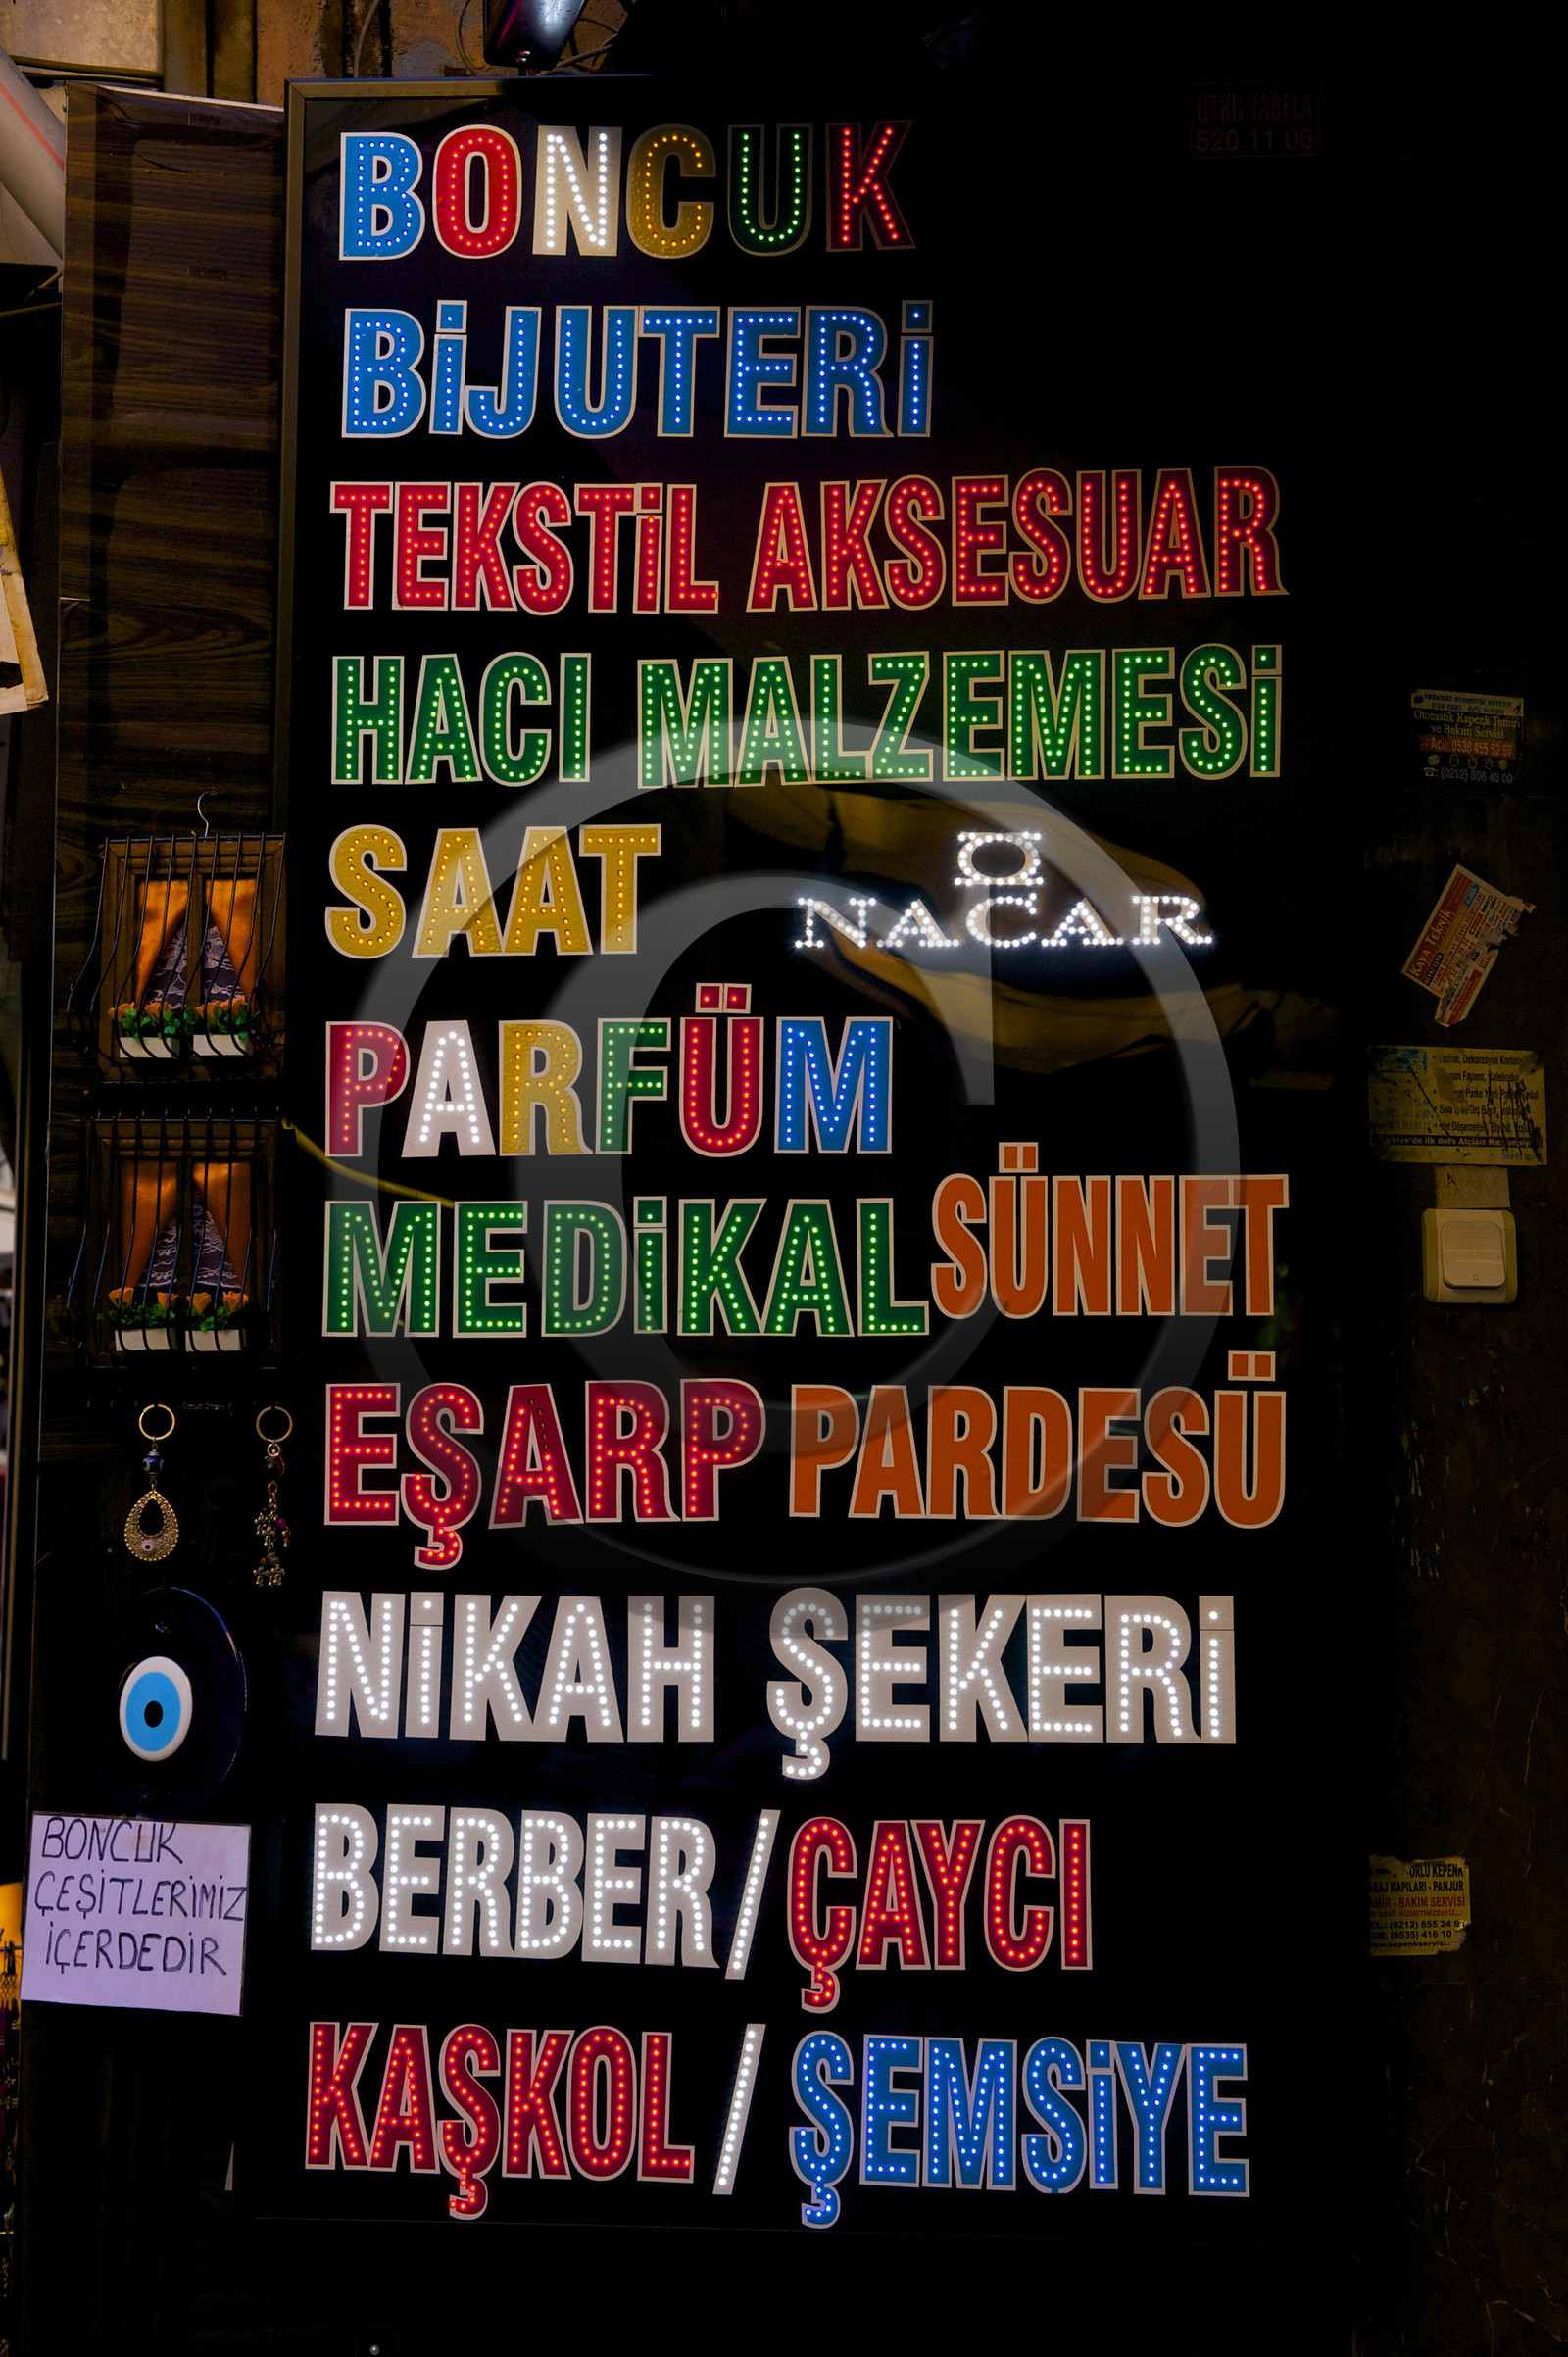 UTKU TABELA
520 11 06
BONCUK
BİJUTERİ
TEKSTİL AKSESUAR
HACI MALZEMESİ
SAAT
NACAR
PARFÜM
MEDİKAL SÜNNET
EŞARP PARDESÜ
NİKAH ŞEKERİ
BERBER / ÇAYCI
KAŞKOL / ŞEMSİYE
BONCUK
ÇEŞİTLERİMİZ
İÇERDEDİR
Otomatik Kepenk Tamiri
ve Bakım Servisi
Acil: 0538 455 52 57
KAYA TEKNİK
KEPENK
ARAJ KAPILARI - PANJUR
AMİR - BAKIM SERVİSİ
(0212) 655 24 9
(0535) 416 10